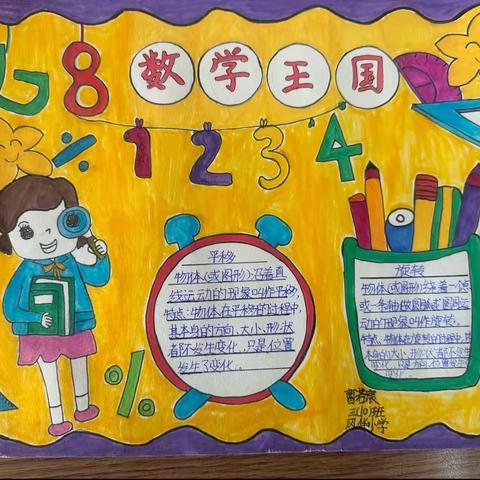 8
数学王国
1 2 3 4
%
平移
物体(或图形)沿着直
线运动的现象叫作平移,
特点:物体在平移的过程中,
其本身的方向、大小、形状
都不发生变化,只是位置
发生了变化.
旋转
物体(或图形)绕着一点
或一条轴做圆周运
动的现象叫作旋转.
特点:物体在旋转的过程中,其
本身的大小、形状都不发生
变化,只是方向
变化.
三(10)班
小学